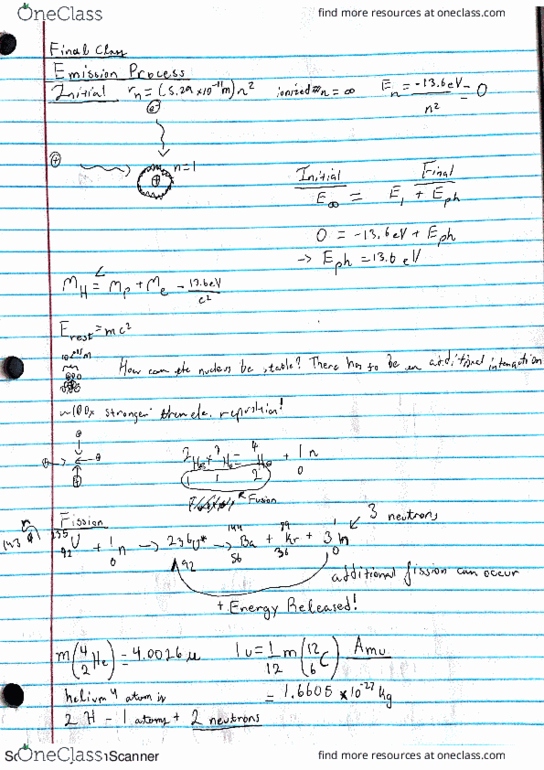 OneClass
find more resources at oneclass.com
Final Class
Emission Process
Initial rn = (5.29 x10^-11 m) n² ionized n = ∞ En = -13.6eV/n² = 0
n=1
Initial Final
E∞ = E1 + Eph
0 = -13.6eV + Eph
→ Eph = 13.6 eV
mH = mp + me - 13.6eV/c²
Erest = mc²
How can the nucleus be stable? There has to be an additional interaction
~100x stronger than ele. repulsion!
2/1 H + 3/1 H = 4/2 He + 1/0 n
Fusion
Fission
3 neutrons
143
235/92 U + 1/0 n → 236/92 U* → 144/56 Ba + 89/36 Kr + 3 1/0 n
additional fission can occur
+ Energy Released!
m(4/2 He) = 4.0026 u 1u = 1/12 m(12/6 C) Amu
helium 4 atom is = 1.6605 x10^-27 kg
2 H - 1 atoms + 2 neutrons
OneClass
Scanner
find more resources at oneclass.com